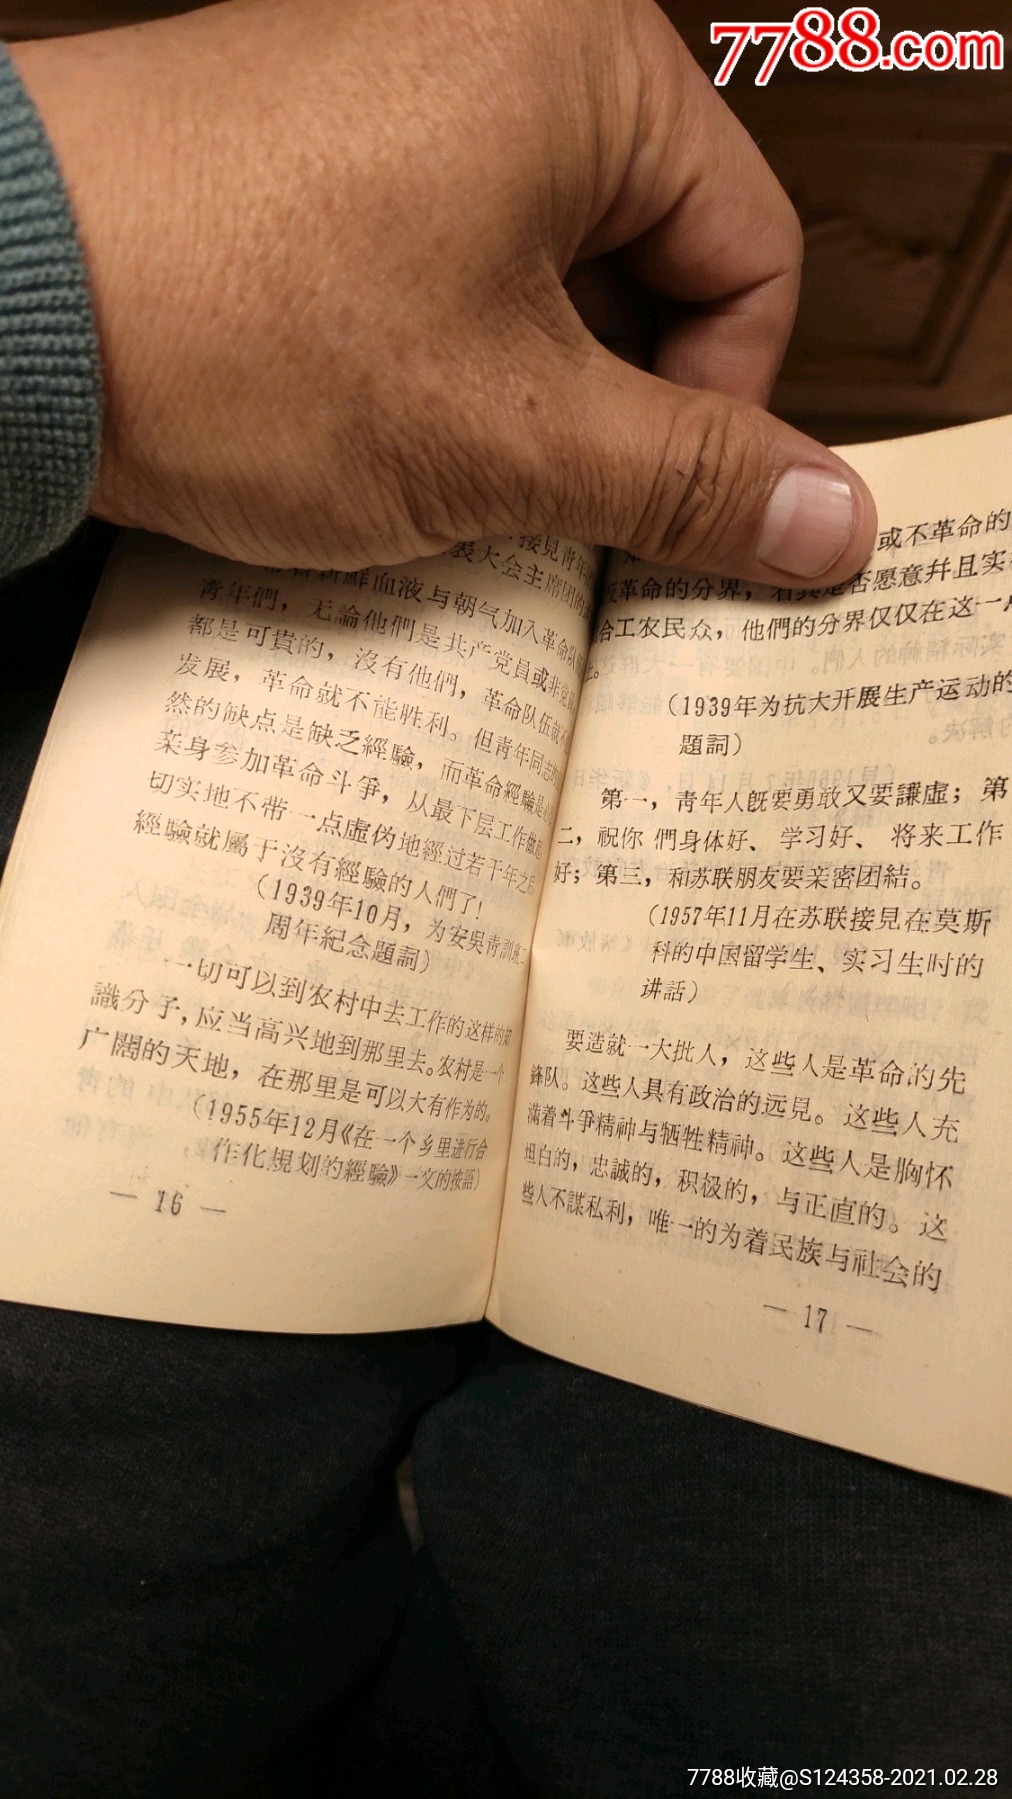 7788.com
接見青年
表大会主席团的
新鮮血液与朝气加入革命队
青年們，无論他們是共产党員或非党
都是可貴的，沒有他們，革命队伍就不
发展，革命就不能胜利。但青年同志的
然的缺点是缺乏經驗，而革命經驗是必
亲身参加革命斗爭，从最下层工作做起
切实地不带一点虛伪地經过若干年之后
經驗就屬于沒有經驗的人們了!
(1939年10月，为安吳青訓班二
周年紀念題詞)
一切可以到农村中去工作的这样的知
識分子，应当高兴地到那里去。农村是一个
广闊的天地，在那里是可以大有作为的。
(1955年12月《在一个乡里进行合
作化規划的經驗》一文的按語)
— 16 —
或不革命的
反革命的分界，看其是否愿意幷且实
合工农民众，他們的分界仅仅在这一
上。
(1939年为抗大开展生产运动的
題詞)
第一，青年人旣要勇敢又要謙虛；第
二，祝你們身体好、学习好、将来工作
好；第三，和苏联朋友要亲密团結。
(1957年11月在苏联接見在莫斯
科的中国留学生、实习生时的
讲話)
要造就一大批人，这些人是革命的先
鋒队。这些人具有政治的远見。这些人充
滿着斗爭精神与牺牲精神。这些人是胸怀
坦白的，忠誠的，积极的，与正直的。这
些人不謀私利，唯一的为着民族与社会的
— 17 —
7788收藏@S124358-2021.02.28